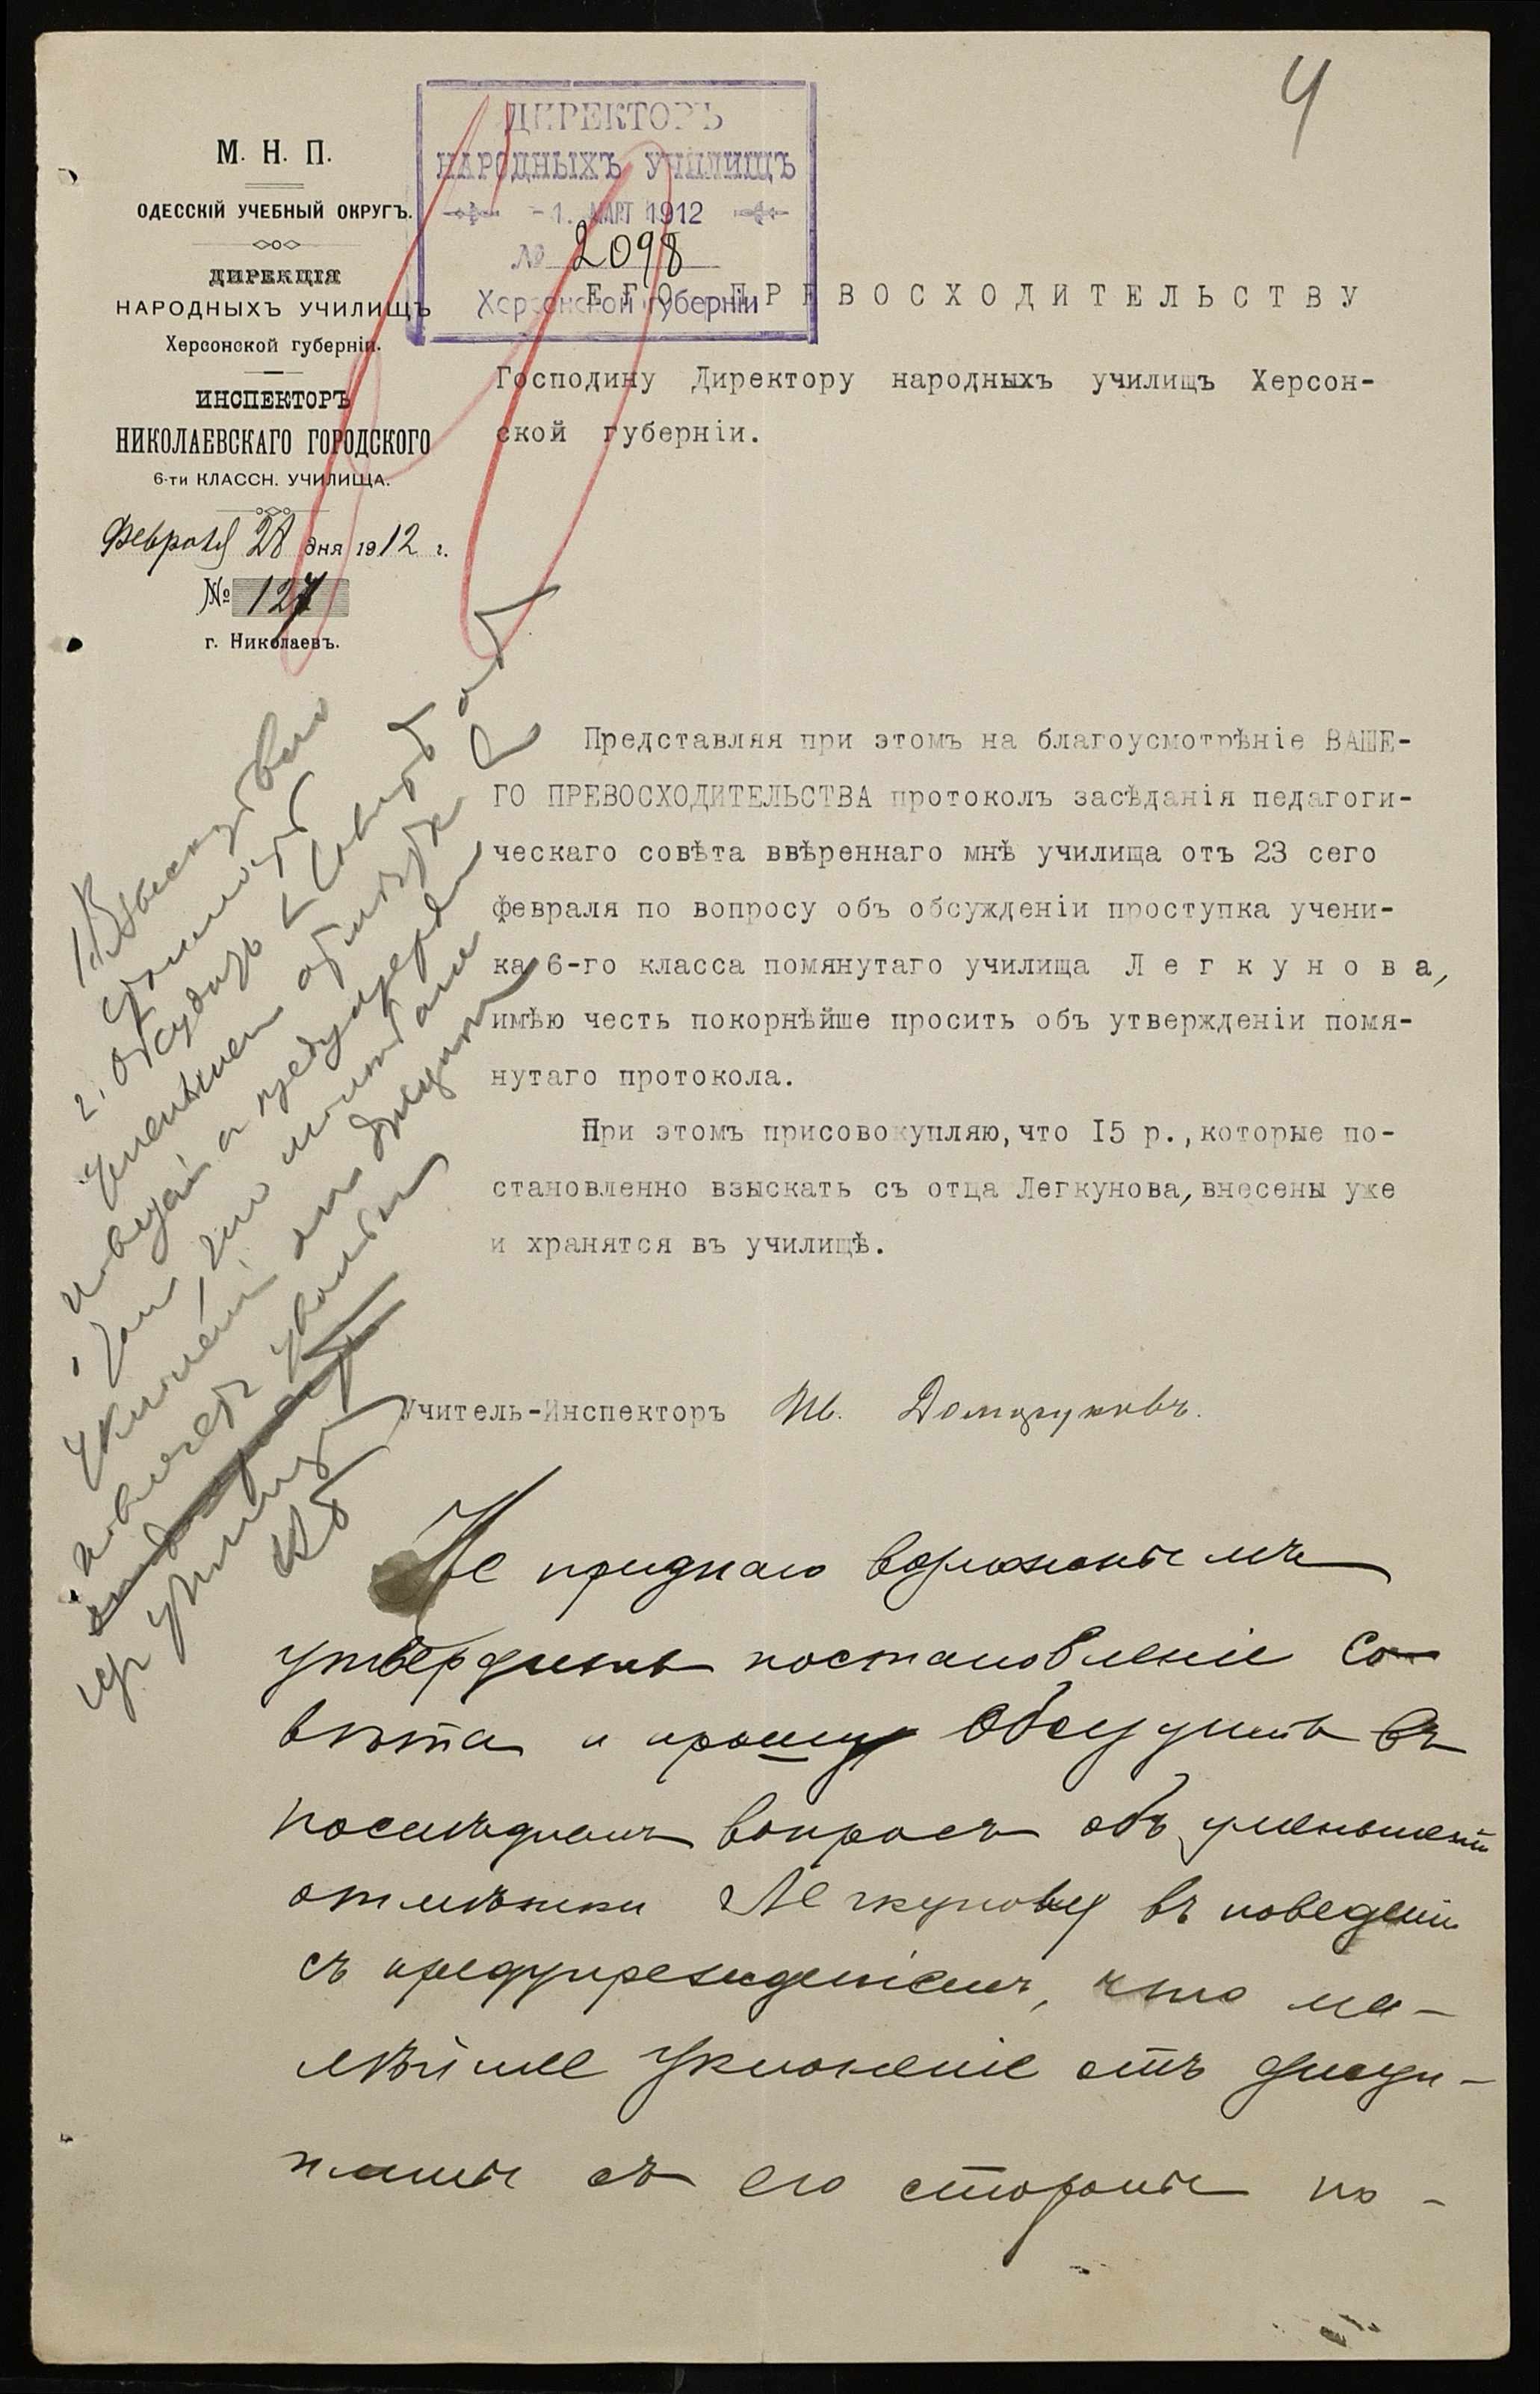 4
М. Н. П.
ОДЕССКІЙ УЧЕБНЫЙ ОКРУГЪ.
ДИРЕКЦІЯ
НАРОДНЫХЪ УЧИЛИЩЪ
Херсонской губерніи.
ИНСПЕКТОРЪ
НИКОЛАЕВСКАГО ГОРОДСКОГО
6-ти КЛАССН. УЧИЛИЩА.
Февраля 28 дня 1912 г.
№ 127
г. Николаевъ.
ДИРЕКТОРЪ
НАРОДНЫХЪ УЧИЛИЩЪ
-1. МАРТ 1912
№ 2098
Херсонской губерніи
ЕГО ПРЕВОСХОДИТЕЛЬСТВУ
Господину Директору народныхъ училищъ Херсон-
ской губерніи.
Представляя при этомъ на благоусмотрѣніе ВАШЕ-
ГО ПРЕВОСХОДИТЕЛЬСТВА протоколъ засѣданія педагоги-
ческаго совѣта ввѣреннаго мнѣ училища отъ 23 сего
февраля по вопросу объ обсужденіи проступка учени-
ка 6-го класса помянутаго училища Легкунова,
имѣю честь покорнѣйше просить объ утвержденіи помя-
нутаго протокола.
При этомъ присовокупляю, что I5 р., которые по-
становленно взыскать съ отца Легкунова, внесены уже
и хранятся въ училищѣ.
Учитель-Инспекторъ Ив.
2. Обсудить въ Совѣтѣ объ
Не признаю возможнымъ
утвердить постановленіе Со-
вѣта и прошу обсудить въ
послѣднемъ вопросъ объ уменьшеніи
отмѣтки Легкунову въ поведеніи
съ предупрежденіемъ, что ма-
лѣйшее уклоненіе отъ дисци-
плины съ его стороны по-